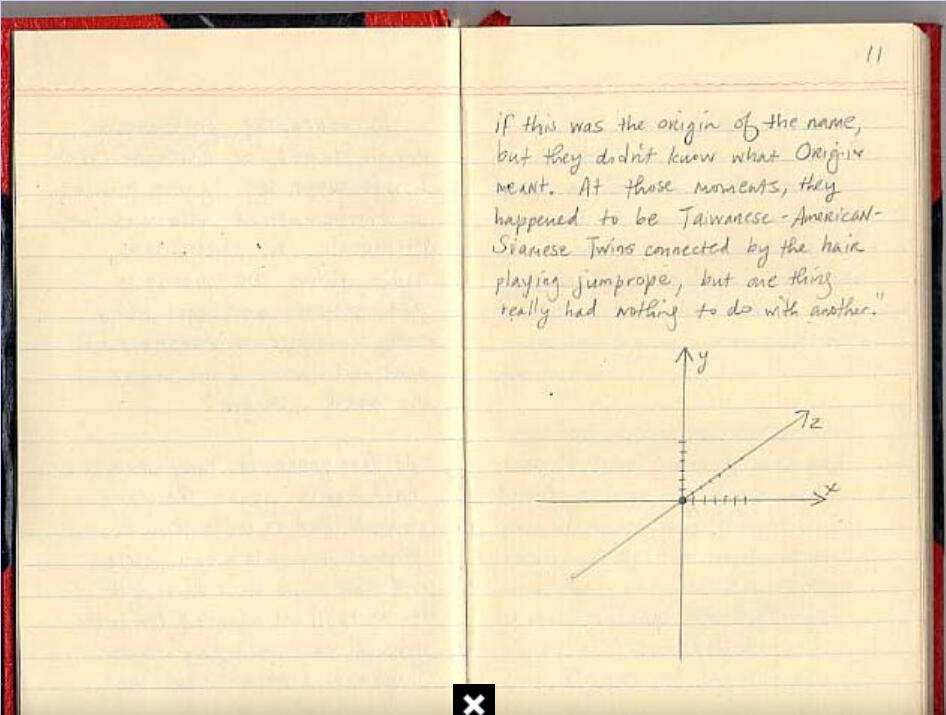 11
if this was the origin of the name,
but they didn't know what Origin
meant. At those moments, they
happened to be Taiwanese-American-
Siamese Twins connected by the hair
playing jumprope, but one thing
really had nothing to do with another."
y
z
x